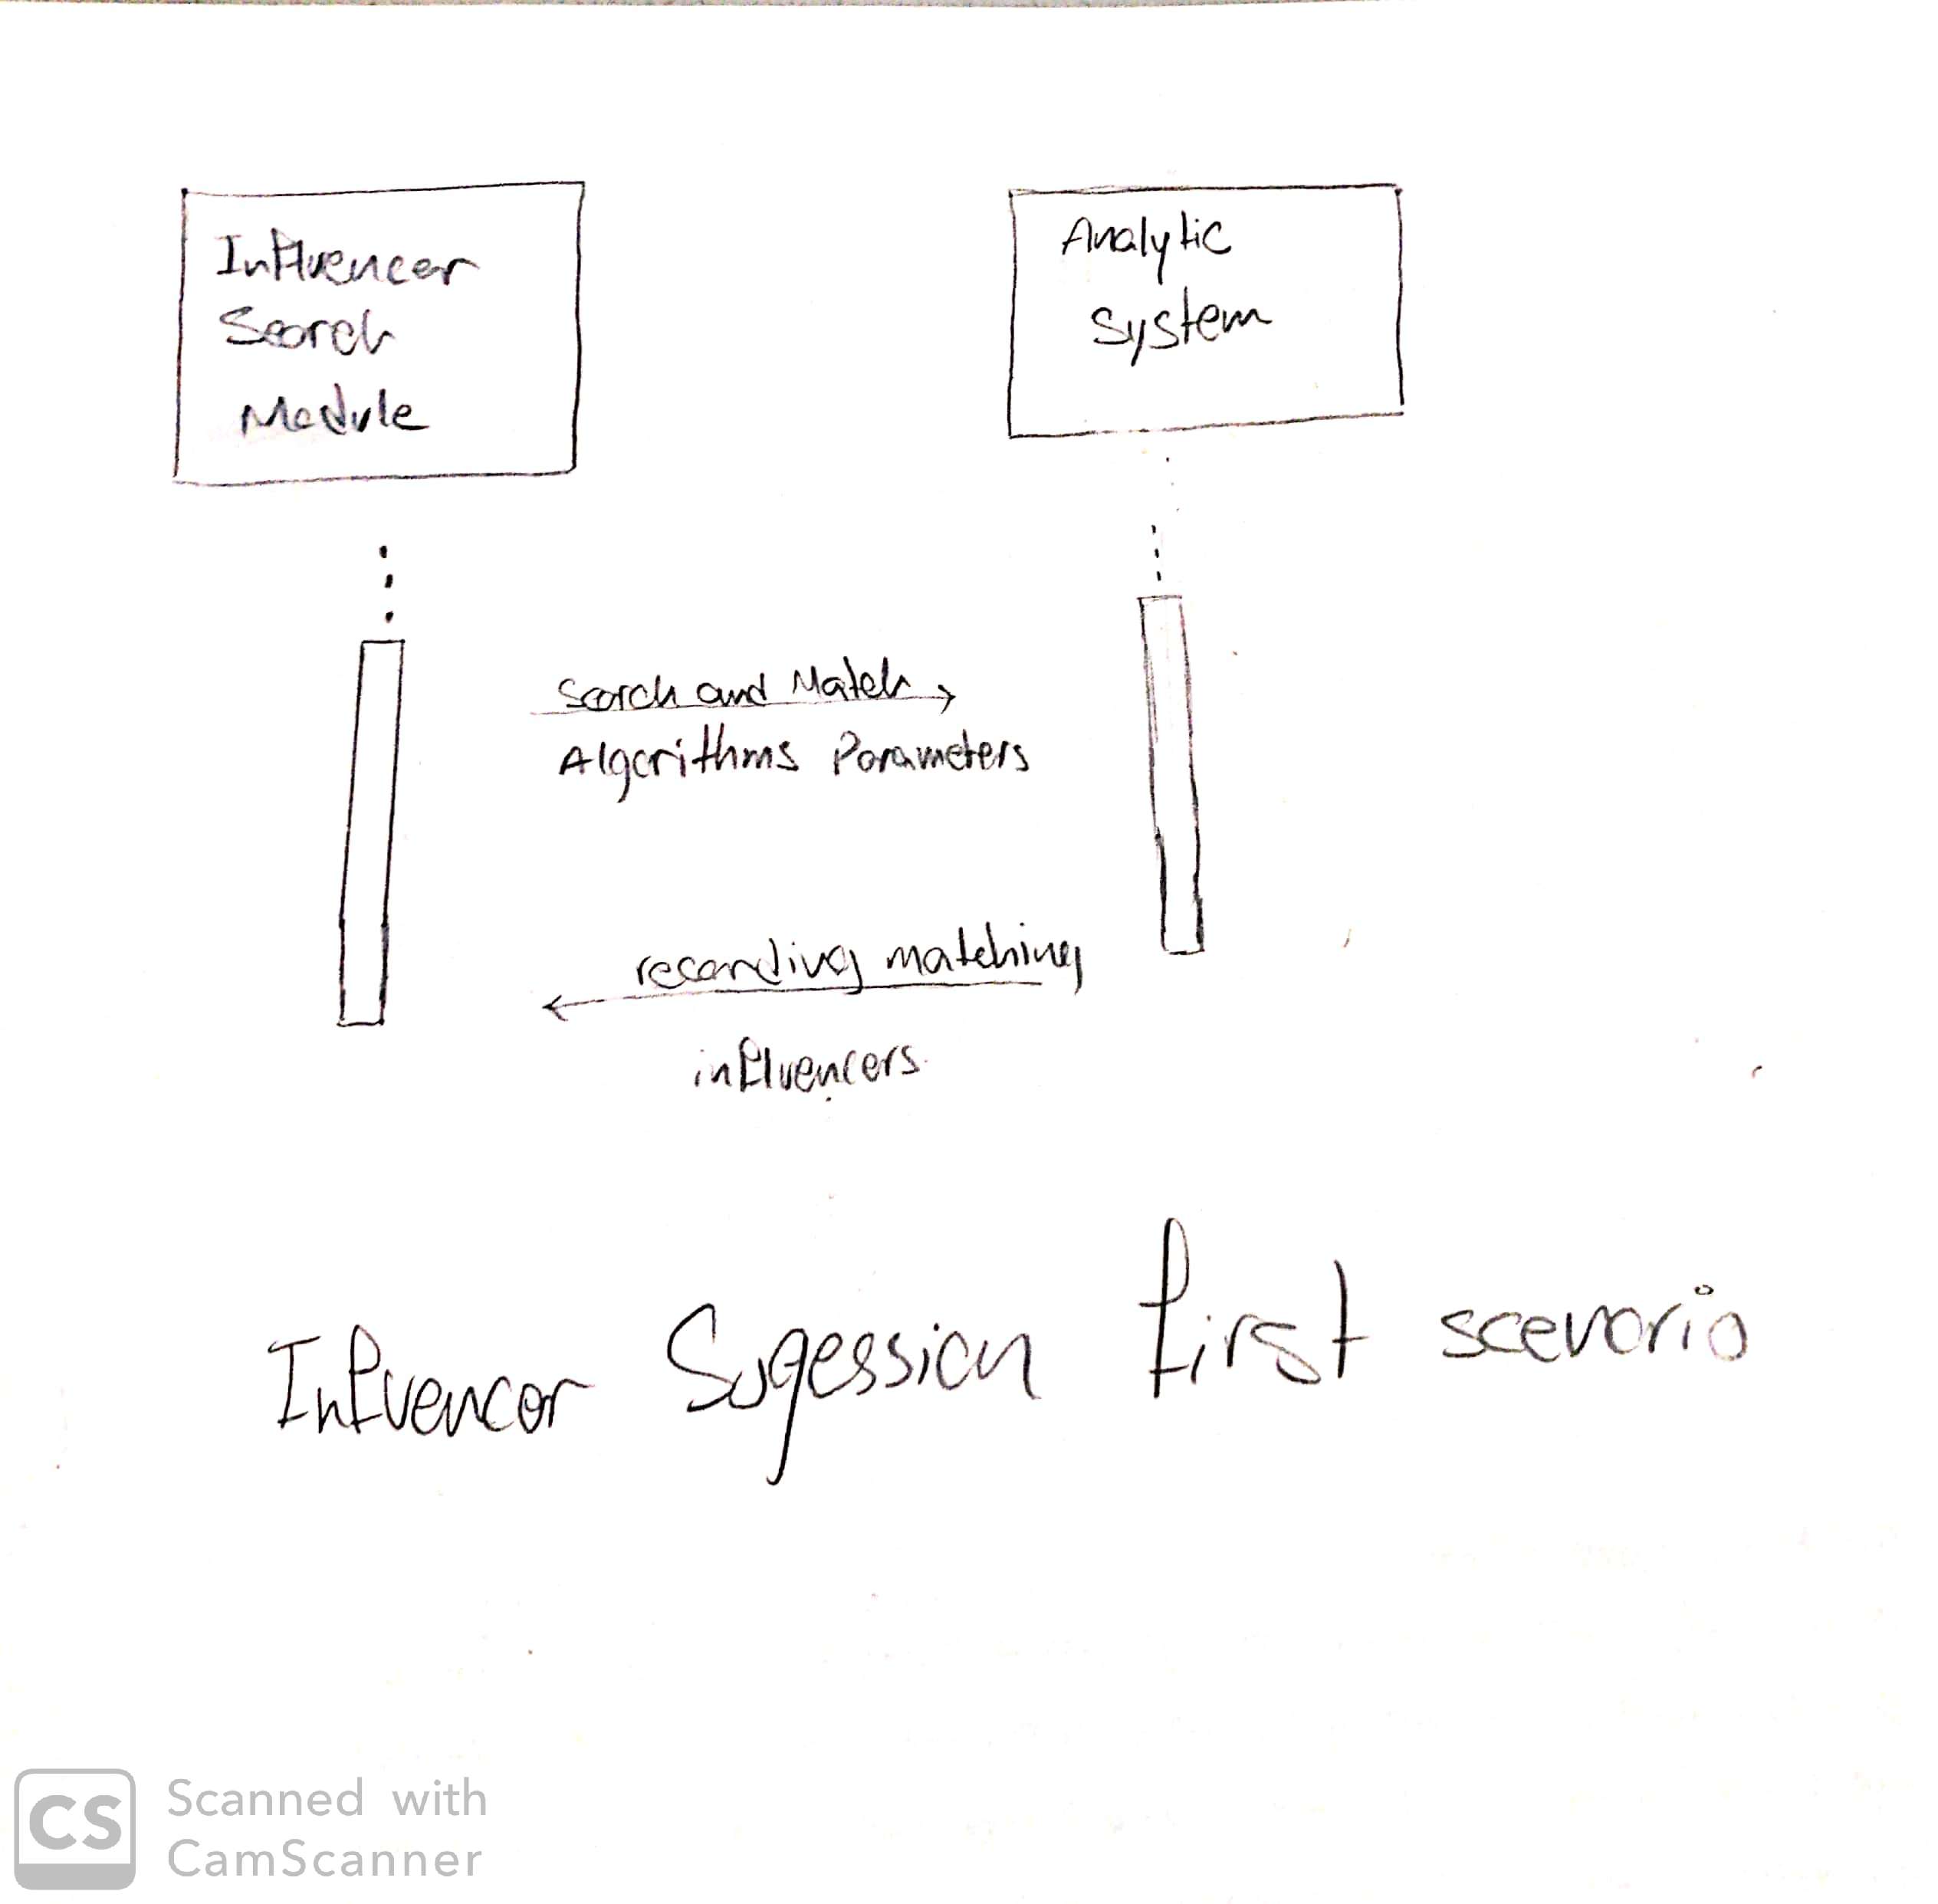 Influencer
Search
Module
Analytic
System
Search and Match
Algorithms Parameters
recording matching
influencers.
Influencer Sugession first scenario
CS
Scanned with
CamScanner